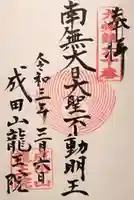 奉拝
南無大日大聖不動明王
令和三年三月六日
成田山龍王院